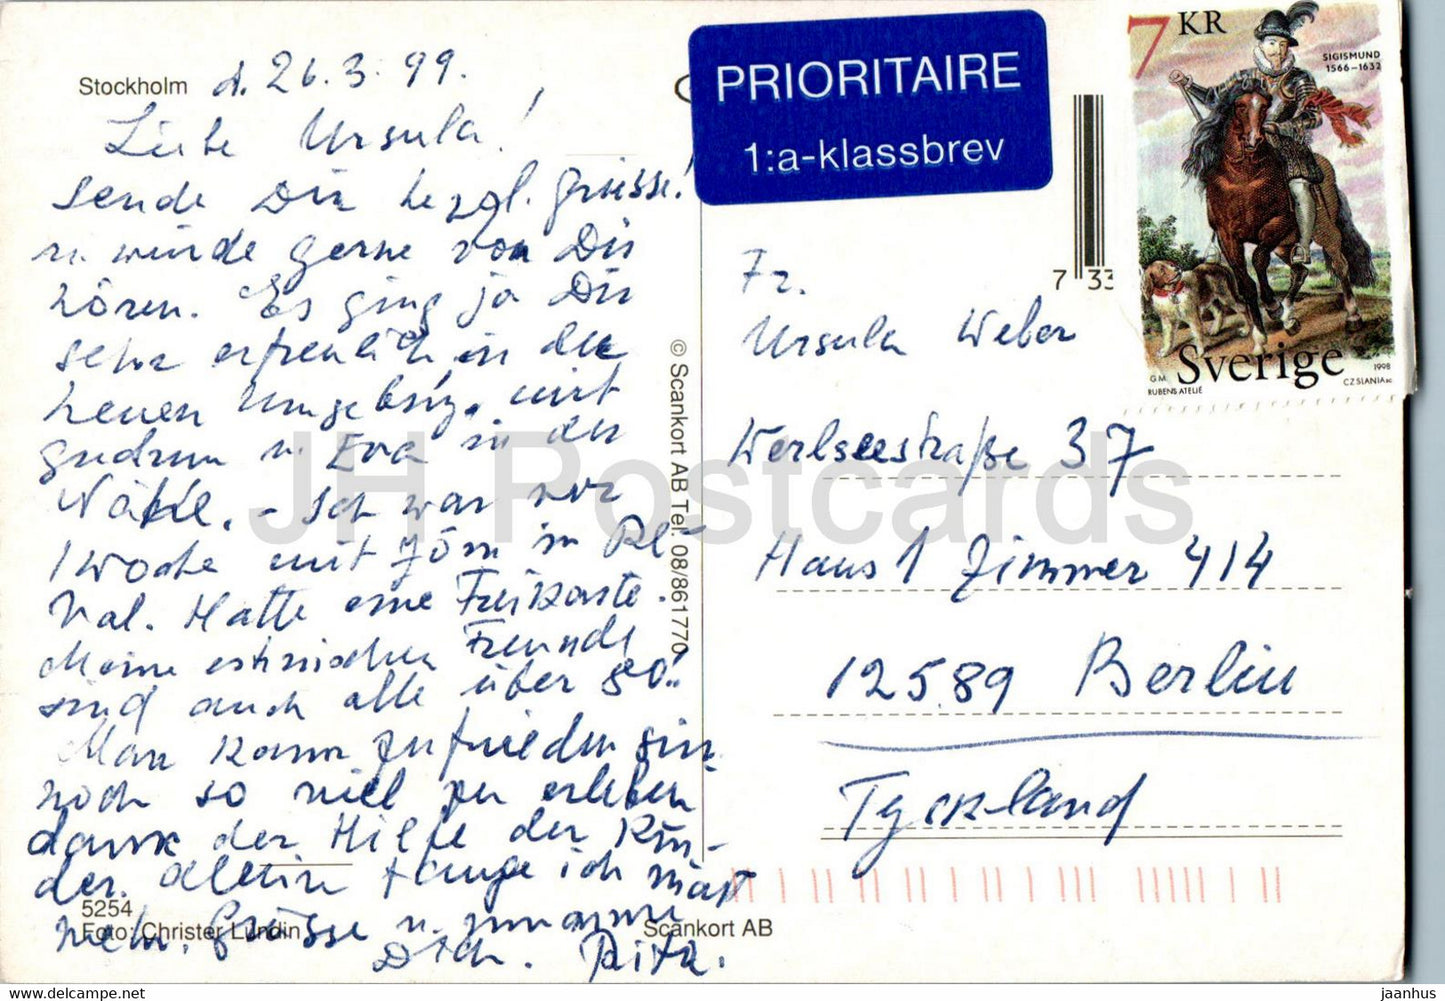 Stockholm d. 26.3.99.
Liebe Ursula!
sende Dir herzgl. Grüsse!
u. würde gerne von Dir
hören. Es ging ja Dir
sehr erfreulich in der
neuen Umgebung, mit
Gudrun u. Eva in der
Nähe. - Ich war vor
1 Woche mit Jörn in Re-
val. Hatte eine Freikarte.
Meine estnischen Freunde
sind auch alle über 80!!
Man kann zufrieden sein
noch so viel zu erleben
dank der Hilfe der Kin-
der. Allein fange ich nicht
mehr. Grüsse u. umarme
Dich. Rita.
5254
Foto: Christer Lundin
Scankort AB
© Scankort AB Tel. 08/861770
PRIORITAIRE
1:a-klassbrev
7 33
7 KR
SIGISMUND
1566-1632
Sverige
G.M.
RUBENS ATELIÉ
1998
CZ SLANIA sc
Fr.
Ursula Weber
Werlseestraße 37
Haus 1 Zimmer 414
12589 Berlin
Tyskland
JH Postcards
jaanhus-us.myshopify.com
jaanhus